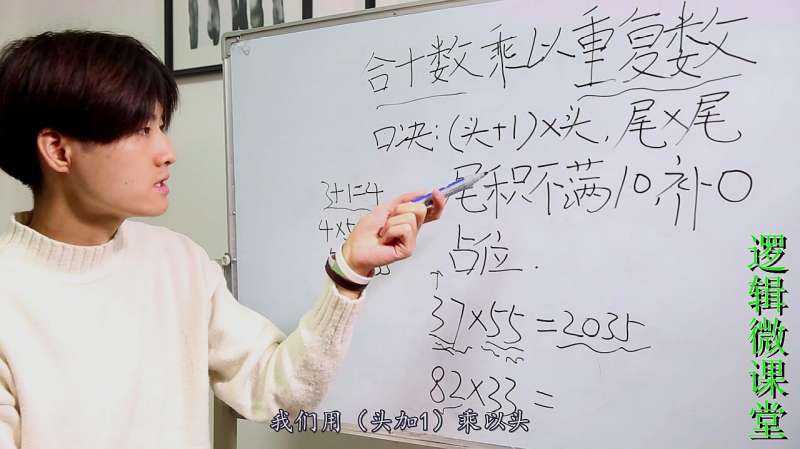 合十数乘以重复数
口决:(头+1)×头,尾×尾
尾积不满10,补0
占位.
3+1=4
4×5
37×55=2035
82×33=
逻辑微课堂
我们用(头加1)乘以头